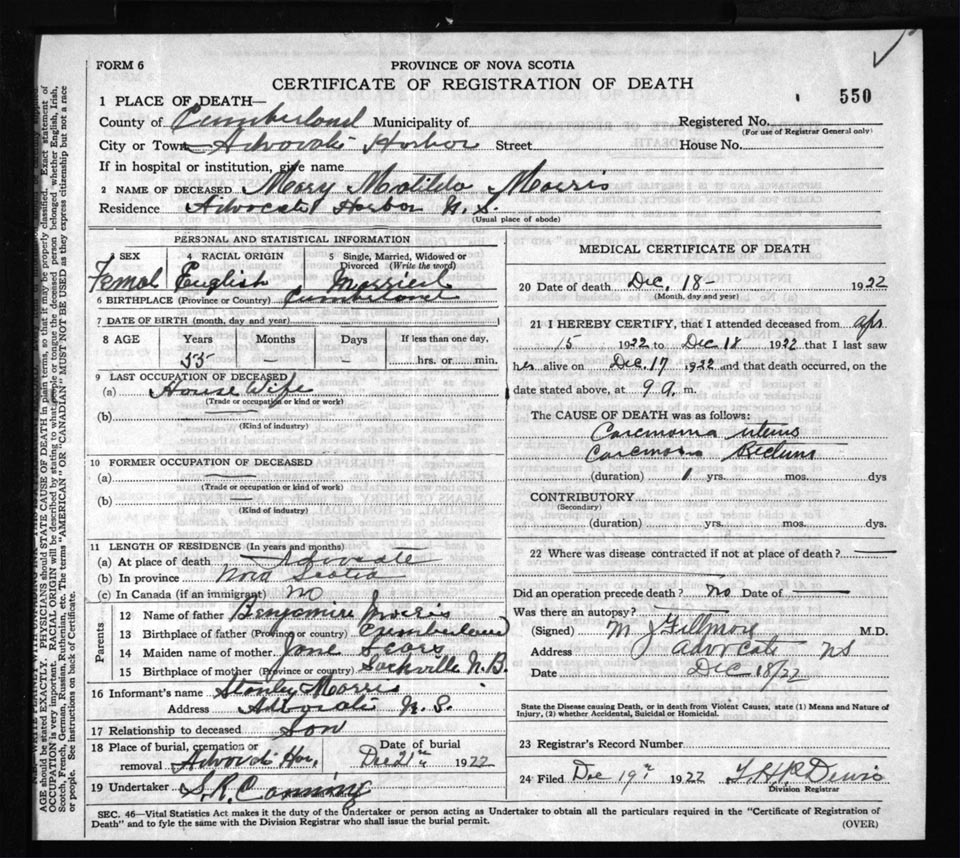 FORM 6
PROVINCE OF NOVA SCOTIA
CERTIFICATE OF REGISTRATION OF DEATH
550
1 PLACE OF DEATH—
County of Cumberland Municipality of
Registered No.
(For use of Registrar General only)
City or Town Advocate Harbor Street House No.
If in hospital or institution, give name
2 NAME OF DECEASED Mary Matilda Morris
Residence Advocate Harbor N. S.
(Usual place of abode)
PERSONAL AND STATISTICAL INFORMATION
3 SEX 4 RACIAL ORIGIN 5 Single, Married, Widowed or
Divorced (Write the word)
Femal English Married
6 BIRTHPLACE (Province or Country) Cumberland
7 DATE OF BIRTH (month, day and year)
8 AGE Years Months Days If less than one day,
55 — — hrs. or min.
9 LAST OCCUPATION OF DECEASED
(a) House Wife
(Trade or occupation or kind or work)
(b) —
(Kind of industry)
10 FORMER OCCUPATION OF DECEASED
(a) —
(Trade or occupation or kind of work)
(b) —
(Kind of industry)
11 LENGTH OF RESIDENCE (In years and months)
(a) At place of death Advocate
(b) In province Nova Scotia
(c) In Canada (if an immigrant) NO
Parents
12 Name of father Benjamine Morris
13 Birthplace of father (Province or country) Cumberland
14 Maiden name of mother Jane Sears
15 Birthplace of mother (Province or country) Sackville N.B
16 Informant's name Stanley Morris
Address Advocate N. S.
17 Relationship to deceased Son
18 Place of burial, cremation or
removal Advocate Har. Date of burial
Dec 21 1922
19 Undertaker S.R. Canning
MEDICAL CERTIFICATE OF DEATH
20 Date of death Dec. 18 - 1922
(Month, day and year)
21 I HEREBY CERTIFY, that I attended deceased from Apr
15 1922 to Dec 18 1922 that I last saw
her alive on Dec 17 1922 and that death occurred, on the
date stated above, at 9 a. m.
The CAUSE OF DEATH was as follows:
Carcinoma uterus
Carcinoma Rectum
(duration) 1 yrs. mos. dys
CONTRIBUTORY
(Secondary)
(duration) yrs. mos. dys.
22 Where was disease contracted if not at place of death? —
Did an operation precede death? No Date of —
Was there an autopsy? —
(Signed) M J Fillmore M.D.
Address Advocate NS
Date Dec 18/22
State the Disease causing Death, or in death from Violent Causes, state (1) Means and Nature of
Injury, (2) whether Accidental, Suicidal or Homicidal.
23 Registrar's Record Number
24 Filed Dec 19 1922 Dewis
Division Registrar
SEC. 46—Vital Statistics Act makes it the duty of the Undertaker or person acting as Undertaker to obtain all the particulars required in the "Certificate of Registration of
Death" and to fyle the same with the Division Registrar who shall issue the burial permit.
(OVER)
AGE should be stated EXACTLY. PHYSICIANS should STATE CAUSE OF DEATH in plain terms, so that it may be properly classified. Exact statement of
OCCUPATION is very important. RACIAL ORIGIN will be described by stating to what people or tongue the deceased person belonged whether English, Irish,
Scotch, French, German, Russian, Ruthenian, etc. The terms "AMERICAN" OR "CANADIAN" MUST NOT BE USED as they express citizenship but not a race
or people. See instructions on back of Certificate.